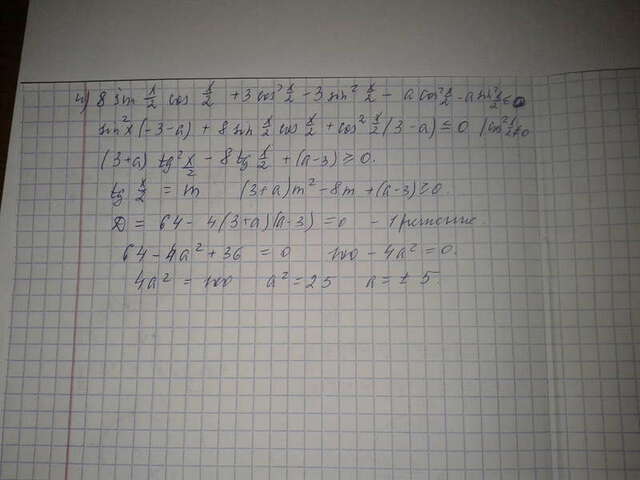 4) 8 sin x/2 cos x/2 + 3 cos² x/2 - 3 sin² x/2 - a cos² x/2 - a sin² x/2 ≤ 0
sin² x (-3-a) + 8 sin x/2 cos x/2 + cos² x/2 (3-a) ≤ 0 | cos² x/2 ≠0
(3+a) tg² x/2 - 8 tg x/2 + (a-3) ≥ 0.
tg x/2 = m (3+a) m² - 8m + (a-3) ≥ 0.
D = 64 - 4(3+a)(a-3) = 0 - 1 решение.
64 - 4a² + 36 = 0 100 - 4a² = 0.
4a² = 100 a² = 25 a = ± 5.